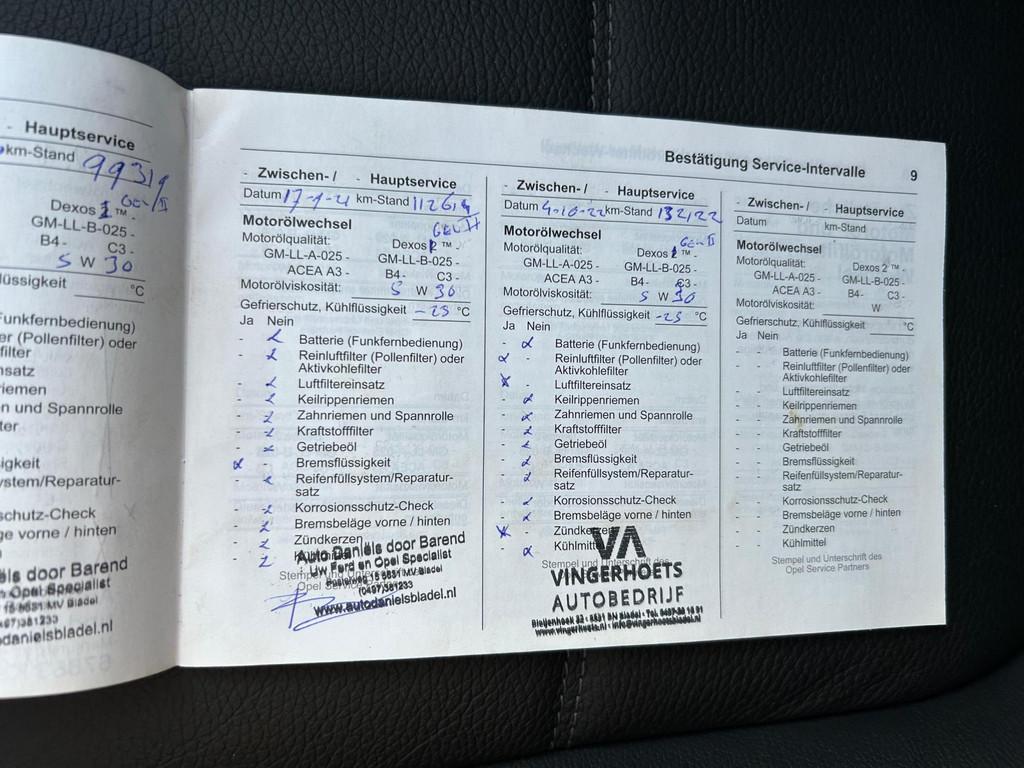 - Hauptservice
km-Stand 99319
Gen II
Dexos 1 ™ -
GM-LL-B-025 -
B4 - C3 -
5 W 30
lüssigkeit °C
Funkfernbedienung)
er (Pollenfilter) oder
filter
nsatz
riemen
n und Spannrolle
lter
sigkeit
ystem/Reparatur-
schutz-Check
ge vorne / hinten
els door Barend
en Opel Specialist
15 5531 MV Bladel
381233
danielsbladel.nl
Bestätigung Service-Intervalle 9
- Zwischen- / - Hauptservice
Datum 17-1-21 km-Stand 112619
Motorölwechsel Gen II
Motorölqualität: Dexos 2 ™ -
GM-LL-A-025 - GM-LL-B-025 -
ACEA A3 - B4 - C3 -
Motorölviskosität: 5 W 30
Gefrierschutz, Kühlflüssigkeit -25 °C
Ja Nein
- Batterie (Funkfernbedienung)
- Reinluftfilter (Pollenfilter) oder
Aktivkohlefilter
- Luftfiltereinsatz
- Keilrippenriemen
- Zahnriemen und Spannrolle
- Kraftstofffilter
- Getriebeöl
- Bremsflüssigkeit
- Reifenfüllsystem/Reparatur-
satz
- Korrosionsschutz-Check
- Bremsbeläge vorne / hinten
- Zündkerzen
Auto Daniëls door Barend
Uw Ford en Opel Specialist
15 5531 MV Bladel
(0497)381233
www.autodanielsbladel.nl
- Zwischen- / - Hauptservice
Datum 4-10-22 km-Stand 132122
Motorölwechsel Gen II
Motorölqualität: Dexos ™ -
GM-LL-A-025 - GM-LL-B-025 -
ACEA A3 - B4 - C3 -
Motorölviskosität: 5 W 30
Gefrierschutz, Kühlflüssigkeit -25 °C
Ja Nein
- Batterie (Funkfernbedienung)
- Reinluftfilter (Pollenfilter) oder
Aktivkohlefilter
- Luftfiltereinsatz
- Keilrippenriemen
- Zahnriemen und Spannrolle
- Kraftstofffilter
- Getriebeöl
- Bremsflüssigkeit
- Reifenfüllsystem/Reparatur-
satz
- Korrosionsschutz-Check
- Bremsbeläge vorne / hinten
- Zündkerzen
- Kühlmittel
Stempel und Unterschrift des
VA
VINGERHOETS
AUTOBEDRIJF
Bleijenhoek 32 - 5531 BN Bladel - Tel. 0497-38 16 91
www.vingerhoets.nl - info@vingerhoetsbladel.nl
- Zwischen- / - Hauptservice
Datum km-Stand
Motorölwechsel
Motorölqualität: Dexos 2 ™ -
GM-LL-A-025 - GM-LL-B-025 -
ACEA A3 - B4 - C3 -
Motorölviskosität: W
Gefrierschutz, Kühlflüssigkeit °C
Ja Nein
- - Batterie (Funkfernbedienung)
- - Reinluftfilter (Pollenfilter) oder
Aktivkohlefilter
- - Luftfiltereinsatz
- - Keilrippenriemen
- - Zahnriemen und Spannrolle
- - Kraftstofffilter
- - Getriebeöl
- - Bremsflüssigkeit
- - Reifenfüllsystem/Reparatur-
satz
- - Korrosionsschutz-Check
- - Bremsbeläge vorne / hinten
- - Zündkerzen
- - Kühlmittel
Stempel und Unterschrift des
Opel Service Partners